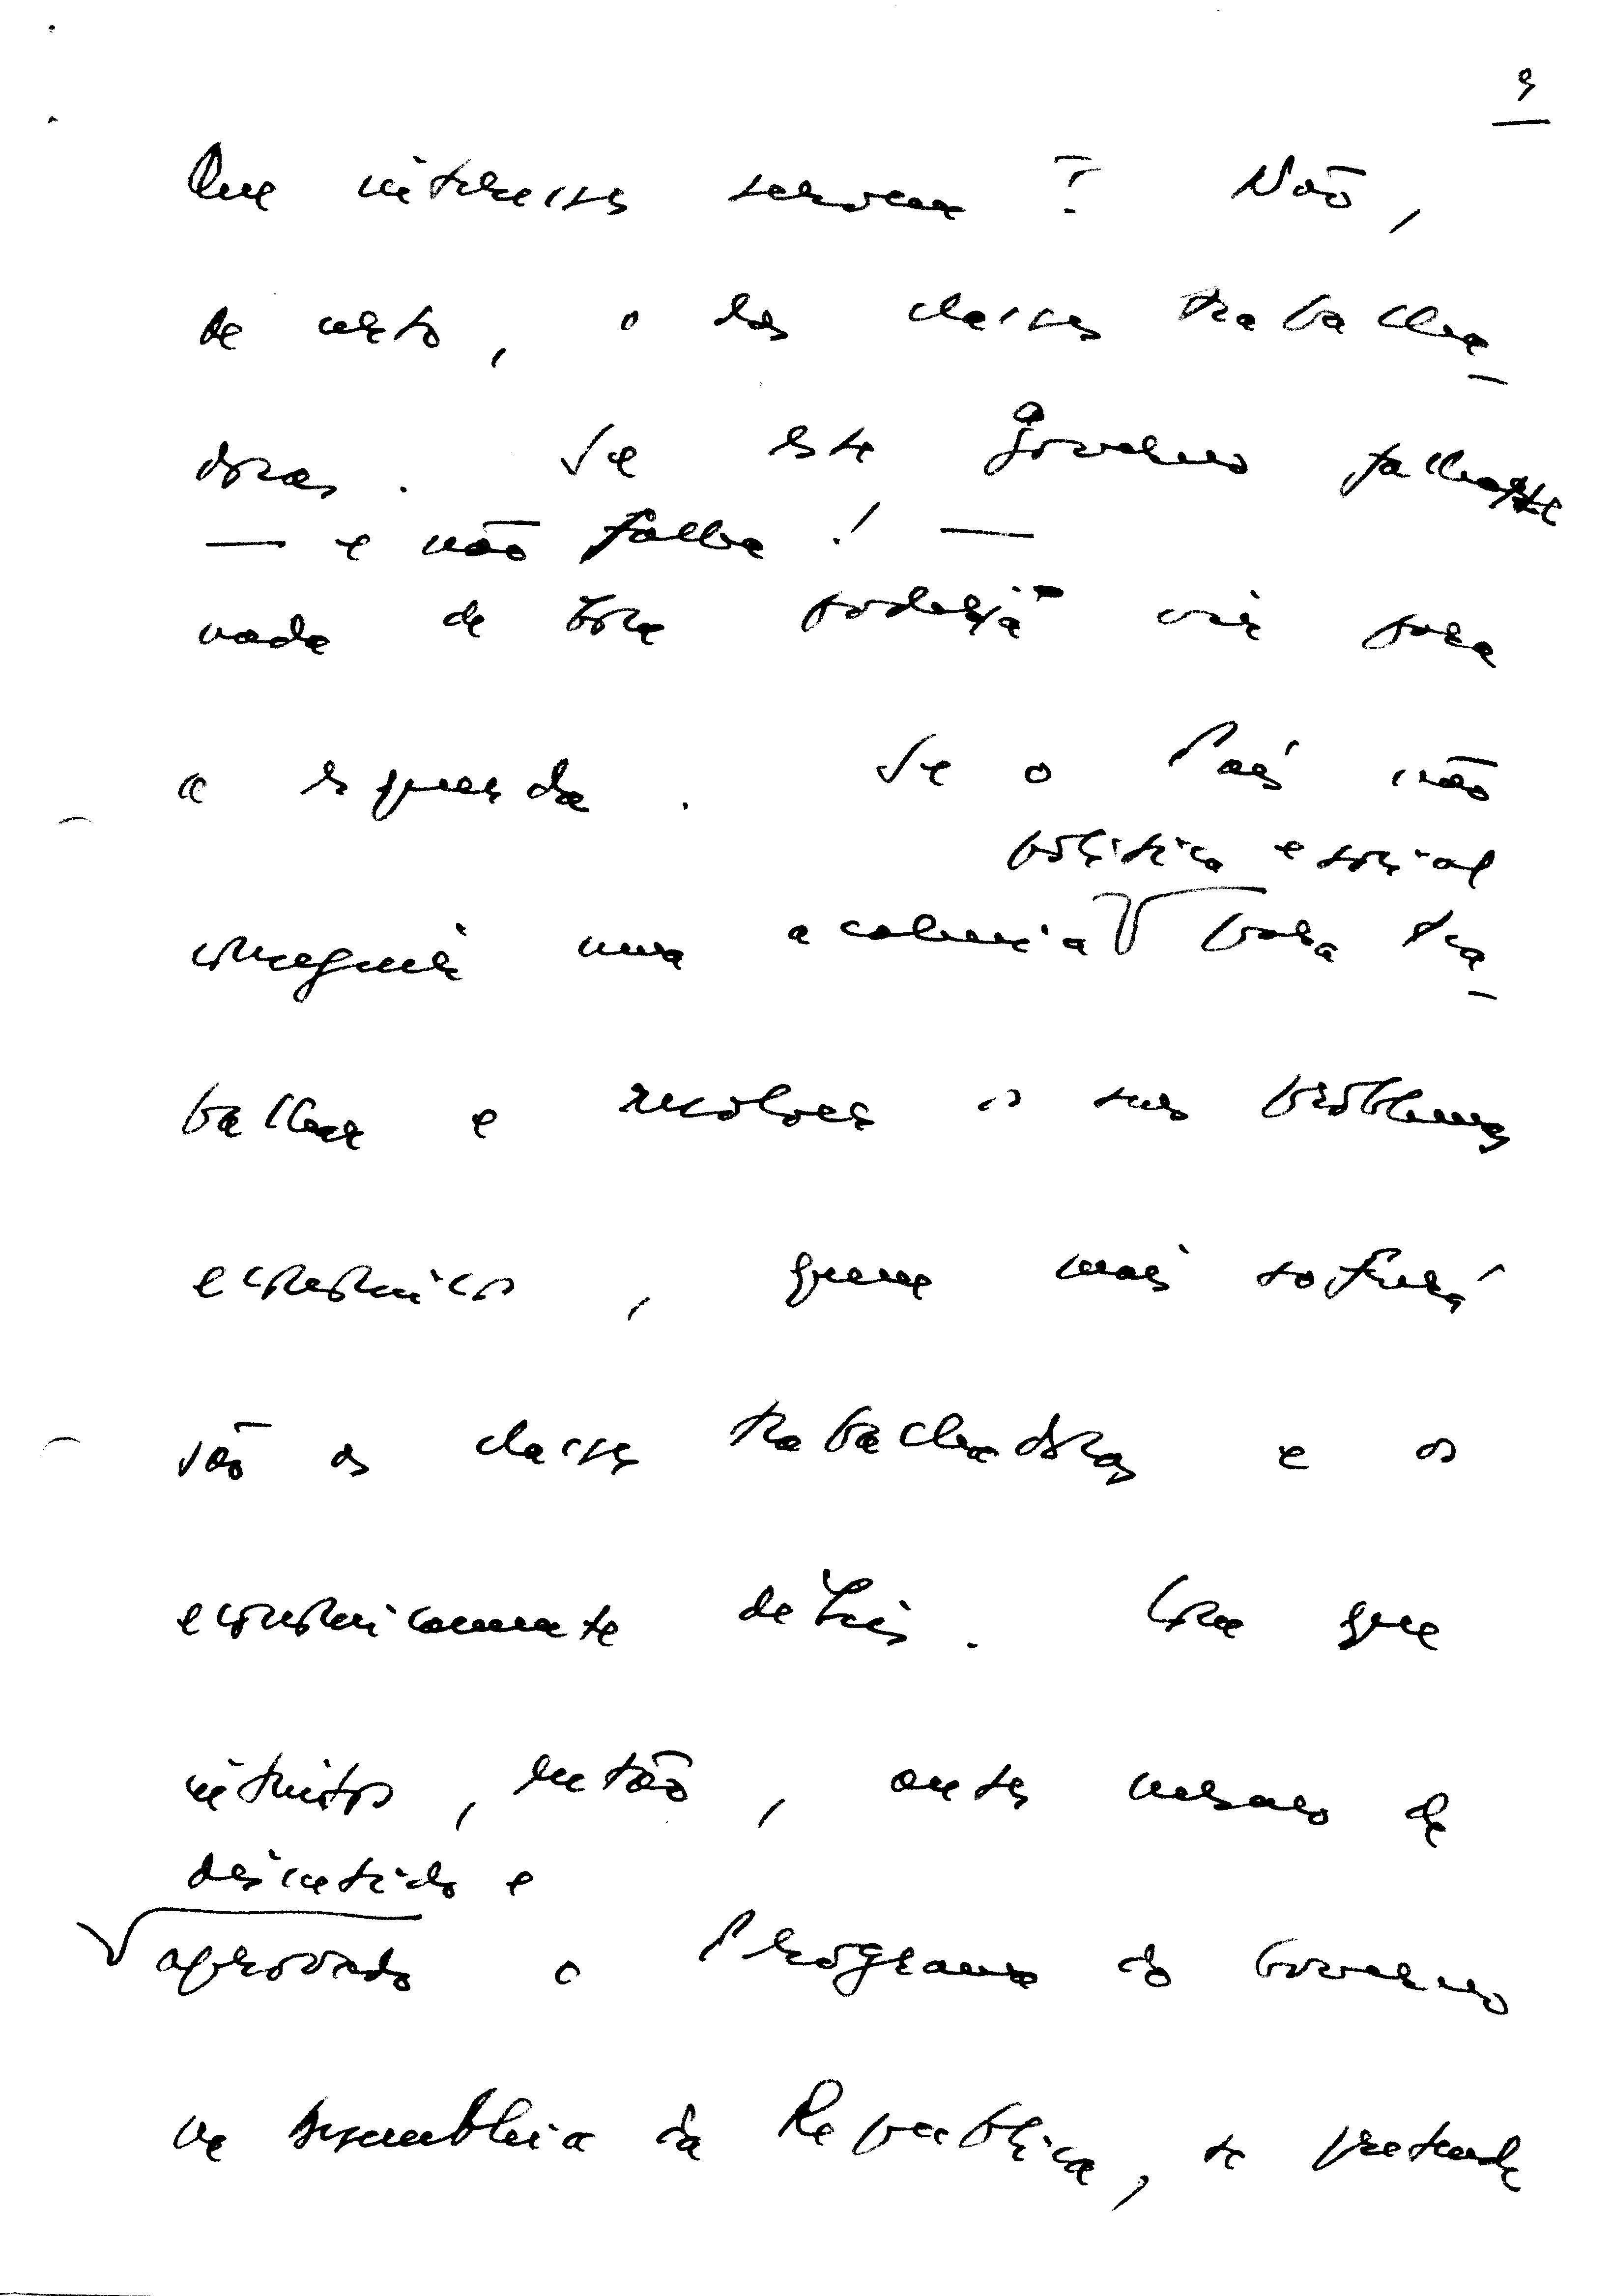 9
Que interesses servem? Não,
de certo, o das classes trabalha-
doras. Se este Governo falhasse
— e não falha! —
nada de bom poderia vir para
a esquerda. Se o País não
política e social
conseguir uma acalmia para tra-
balhar e resolver os seus problemas
económicos, quem mais sofrerá
são as classes trabalhadoras e os
economicamente débeis. Com que
intuitos, então, antes mesmo de
discutido e
aprovado o Programa do Governo
na Assembleia da República, se pretende